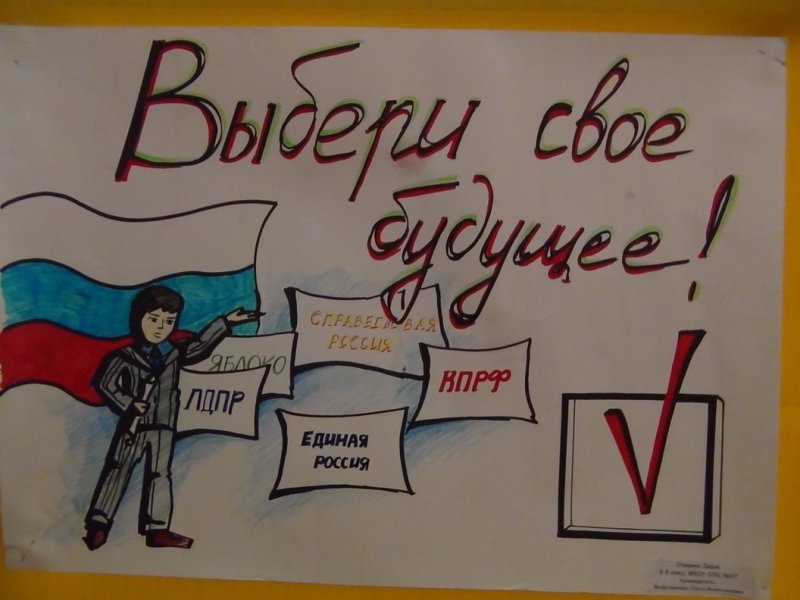 Выбери свое
будущее!
1
СПРАВЕДЛИВАЯ
РОССИЯ
ЯБЛОКО
КПРФ
ЛДПР
ЕДИНАЯ
РОССИЯ